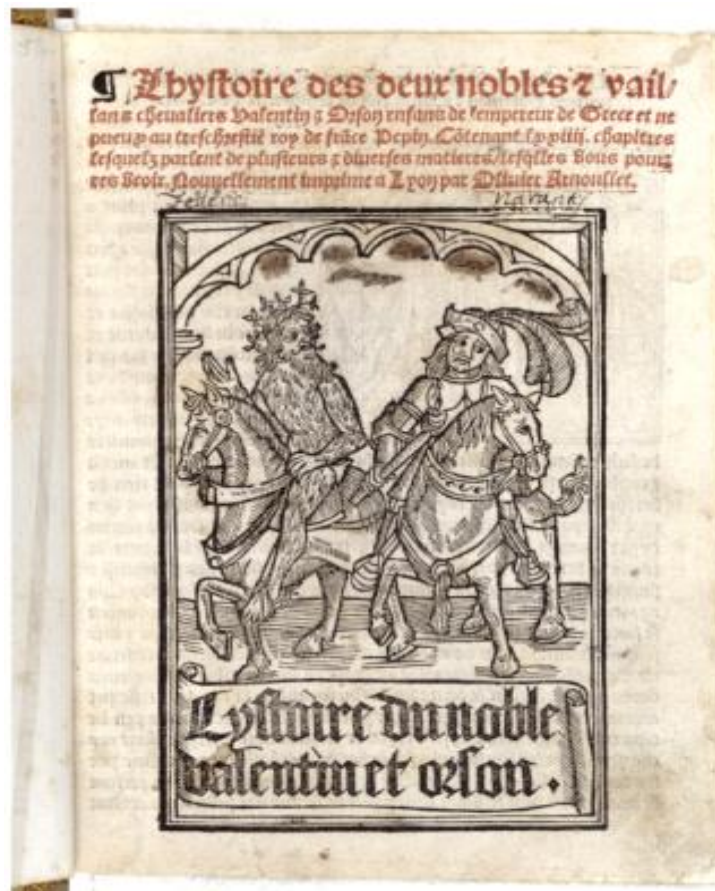 ¶ Lhystoire des deux nobles ⁊ vail/
lans cheualiers Valentin ⁊ Orson enfans de lempereur de Grece et ne
pueux au treschrestiē roy de frāce Pepin. Cōtenant. lxxiiii. chapitres
lesquelz parlent de plusieurs ⁊ diuerses matieres/lesq̄lles vous pour
res veoir. Nouuellement imprime a Lyon par Olliuier Arnoullet.
Lystoire du noble
valentin et orson.